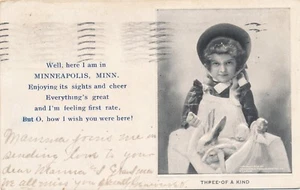 Well, here I am in
MINNEAPOLIS, MINN.
Enjoying its sights and cheer
Everything's great
and I'm feeling first rate,
But O, how I wish you were here!
joins me in
sending love to you
dear Mamma & Grandma
all miss you
THREE-OF A KIND